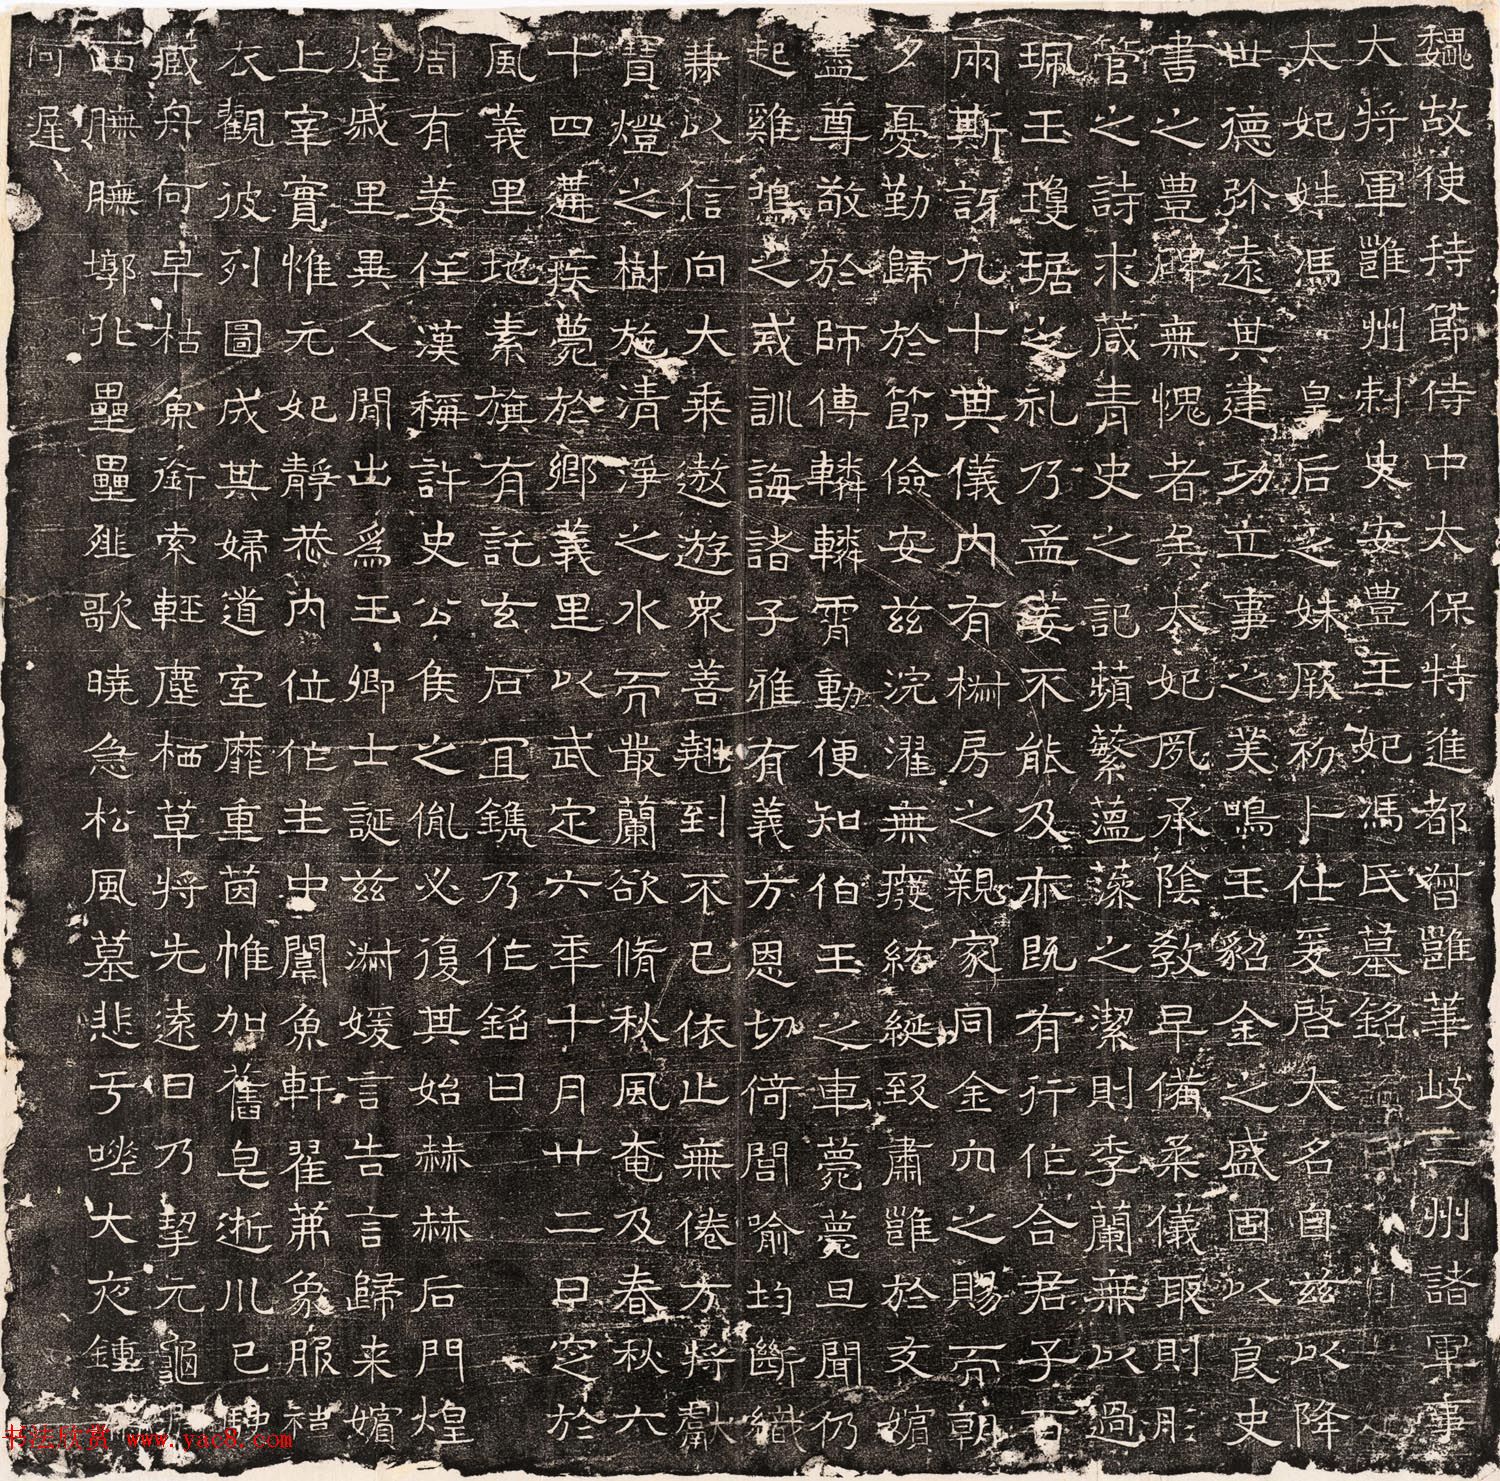 魏故使持節侍中太保特進都督雝華岐三州諸軍事
大將軍雝州刺史安豊王妃馮氏墓銘
太妃姓馮皇后之妹厥初卜仕爰啓大名自兹以降
世德弥遠其建功立事之美鳴玉貂金之盛固以良史
書之豊碑無愧者矣太妃夙承陰教早備柔儀取則彤
管之詩求箴青史之記蘋蘩薀藻之潔則季蘭無以過
珮玉瓊琚之礼乃孟姜不能及亦既有行作合君子百
兩斯訝九十其儀内有椒房之親家同金穴之賜而朝
夕憂勤歸於節儉安兹浣濯無癈紘綖致肅雝於友嬪
盡尊敬於師傅轔轔霄動便知伯玉之車薨薨旦聞仍
起雞鳴之戒訓誨諸子雅有義方恩切倚閭喻均斷織
兼以信向大乘遨遊衆善翹到不已依止無倦方將獻
寶燈之樹施清淨之水而叢蘭欲脩秋風奄及春秋六
十四遘疾薨於鄉義里以武定六年十月廿二日窆於
風義里地素旗有託玄石宜鐫乃作銘曰
周有姜任漢稱許史公侯之胤必復其始赫赫后門煌
煌戚里異人閒出爲王卿士誕兹淑媛言告言歸来嬪
上宰實惟元妃靜恭内位作主中闈魚軒翟茀象服褘
衣觀彼列圖成其婦道室靡重茵帷加舊皂逝川已
藏舟何早枯魚銜索輕塵栖草將先遠日乃挈元龜
西膴膴墎北壘壘䢁歌曉急松風墓悲于嗟大夜鍾
何遲
书法欣赏 www.yac8.com